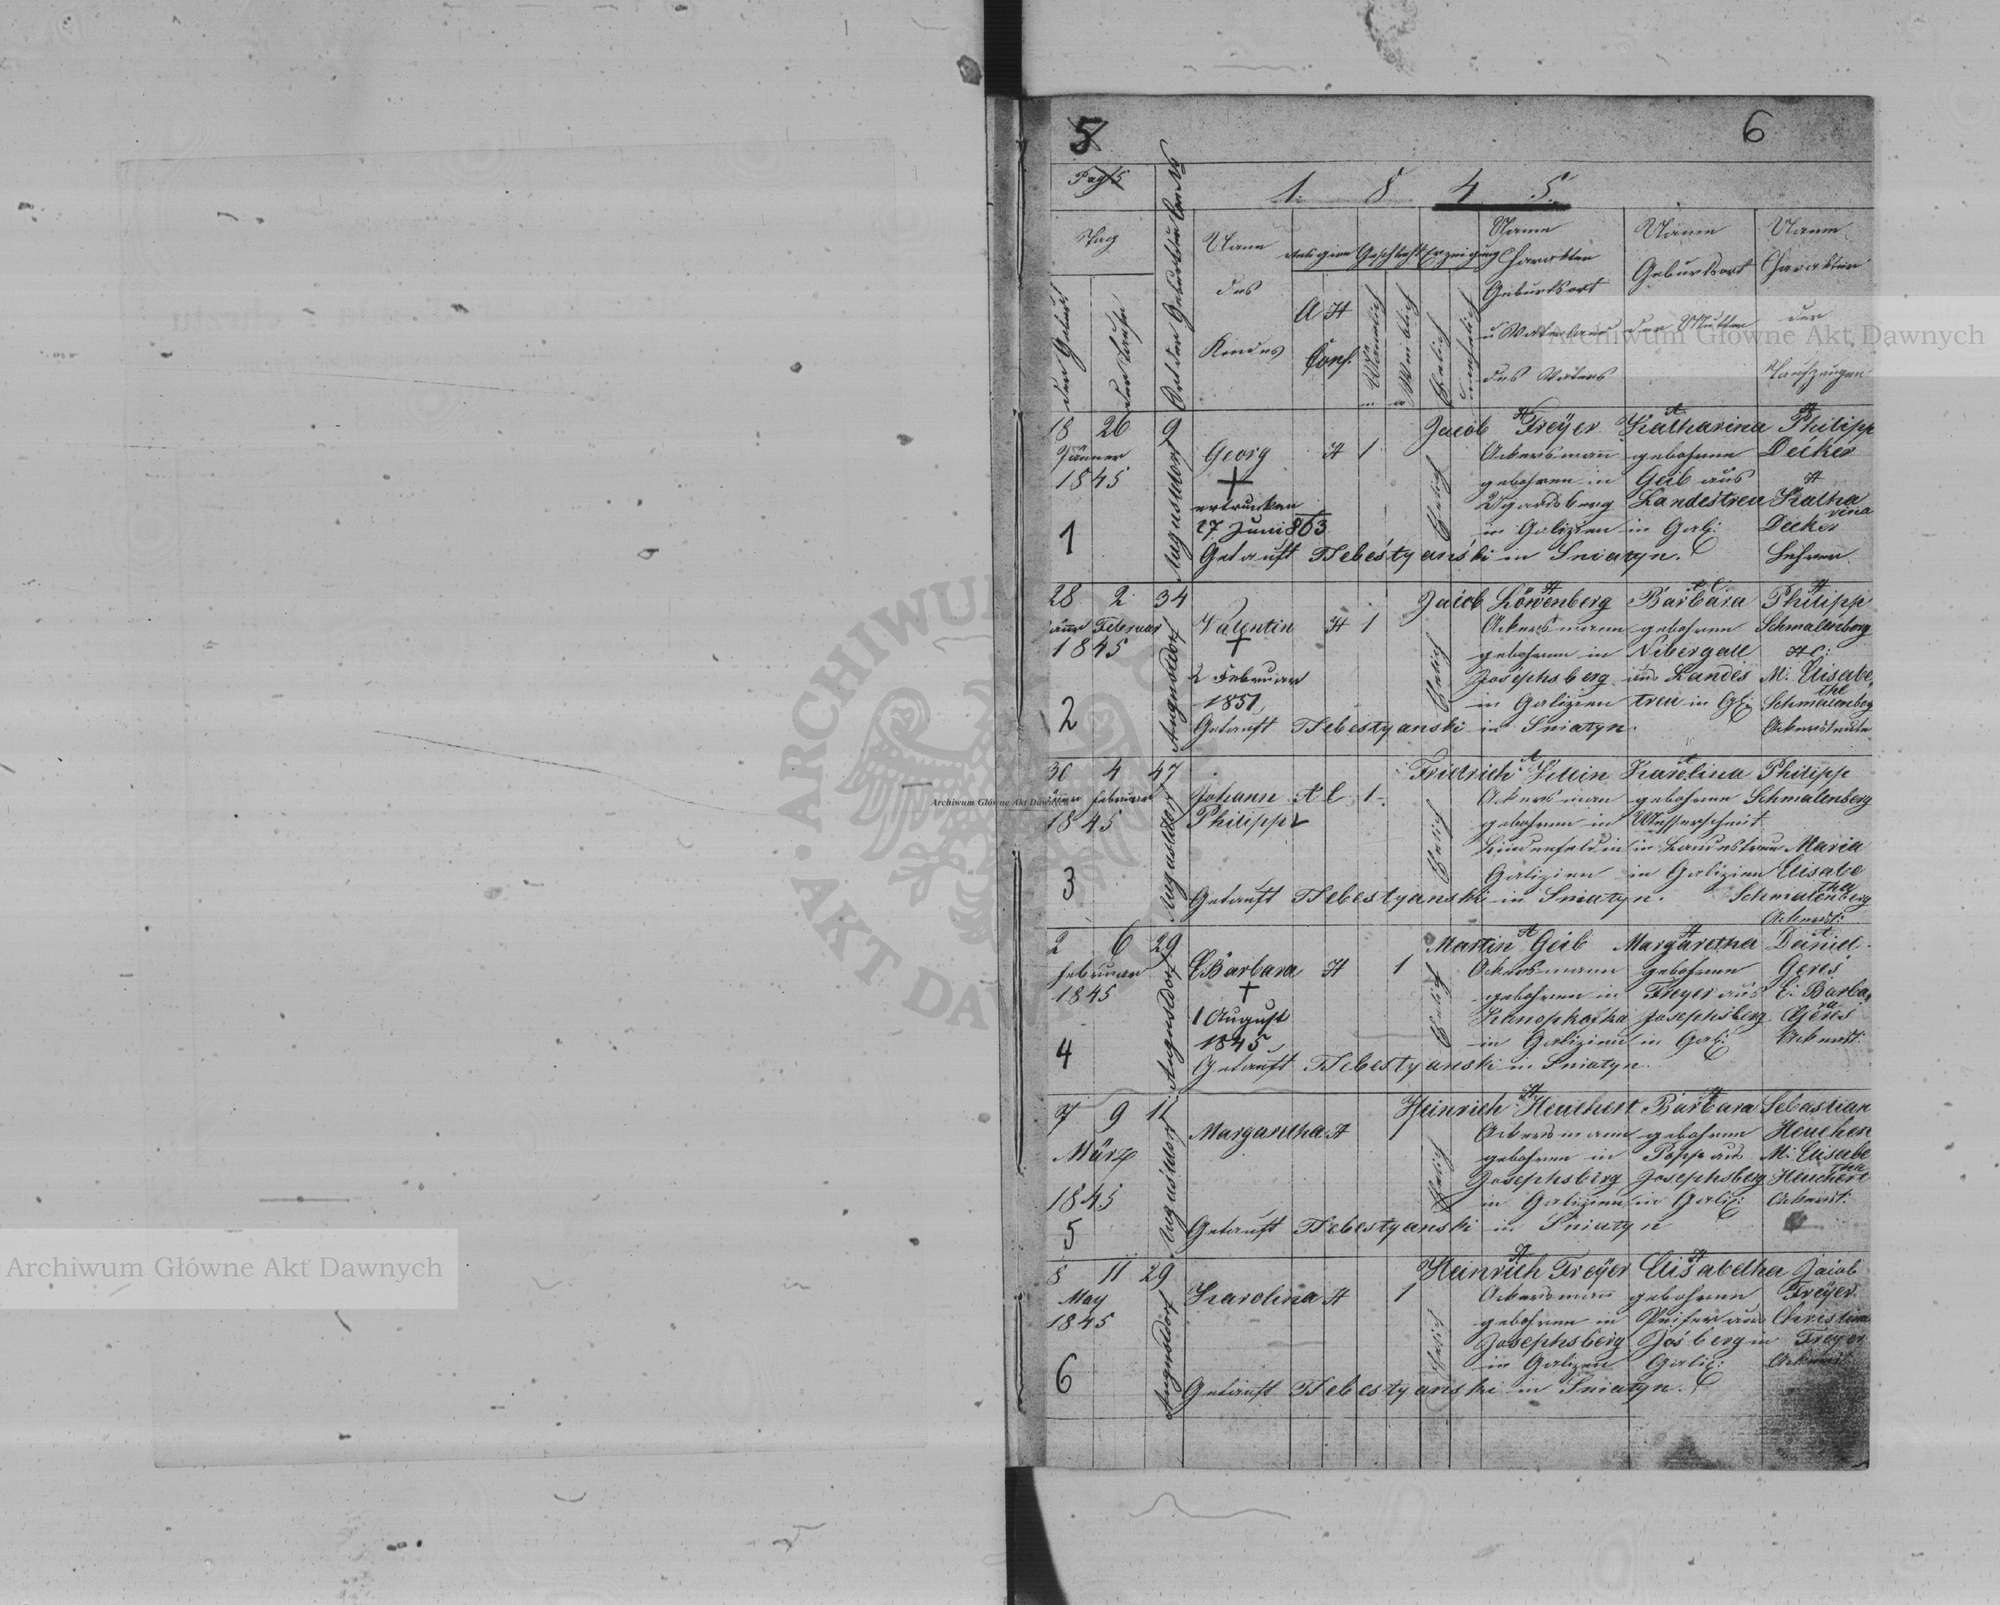 5
6
Pag 5
1. 8 4 5.
Tag
der Geburt
der Taufe
Ort der Geburt u Con No
Name
des
Kindes
Religion
A H
Conf.
Geschlecht
Männlich
Weiblich
Erzeigung
Ehelich
Unehelich
Name
Charakter
Geburtsort
u Vaterland
des Vaters
Name
Geburtsort
der Mutter
Name
Charakter
der
Taufzeugen
18 26 9
Jänner
1845
1
Augustdorf
Georg
ertrunken
27 Juni 863
H 1
Ehelich
Jacob Freÿer
Ackersmann
gebohren in
in Galizien
Katharina
gebohrne
Geib aus
Landestreu
in Gali:
Philipp
Decker
Katha
rina
Decker
Lehrer
Getauft Tebestyanski in Sniatyn.
28 2 34
Februar
1845
2
Augustdorf
Valentin
2 Februar
1851
H 1
Ehelich
Jacob Löwenberg
Ackersmann
gebohren in
Josephsberg
in Galizien
Barbara
gebohren
Nebergall
aus Landes
treu in Gl:
Philipp
Schmalenberg
M: Elisabe
the
Schmalenberg
Ackersleute
Getauft Tebestyanski in Sniatyn.
30 4 47
Februar
1845
3
Augustdorf
Johann
Philipp
1
Ehelich
Fridrich Klein
Ackersman
gebohren in
Lindenfeld in
Galizien
Karolina
gebohrne
Messerschmit
in Landestreu
in Galizien
Philipp
Schmalenberg
Maria
Elisabe
tha
Schmalenberg
Getauft Tebestyanski in Sniatyn.
2 6 29
Februar
1845
4
Augustdorf
Barbara
1 August
1845
H 1
Ehelich
Martin Geib
Ackersmann
gebohren in
in Galizien
Margaretha
gebohrne
Freyer aus
Josephsberg
in Gali:
Daniel
Geres
Barba
ra
Geres
Getauft Tebestyanski in Sniatyn.
7 9 11
März
1845
5
Augustdorf
Margaretha H 1
Ehelich
Heinrich Heuchert
Ackersmann
gebohren in
Josephsberg
in Galizien
Barbara
gebohrne
Popp aus
Josephsberg
in Gali:
Sebastian
Heuchert
M: Elisabe
tha
Heuchert
Getauft Tebestyanski in Sniatyn
8 11 29
May
1845
6
Augustdorf
Karolina H 1
Ehelich
Heinrich Freÿer
Ackersmann
gebohren in
Josephsberg
in Galizien
Elisabetha
gebohren
Peifer aus
Jos berg in
Galiz:
Jacob
Freÿer
Christina
Freyer
Getauft Tebestyanski in Sniatyn.
Archiwum Główne Akt Dawnych
Archiwum Główne Akt Dawnych
Archiwum Główne Akt Dawnych